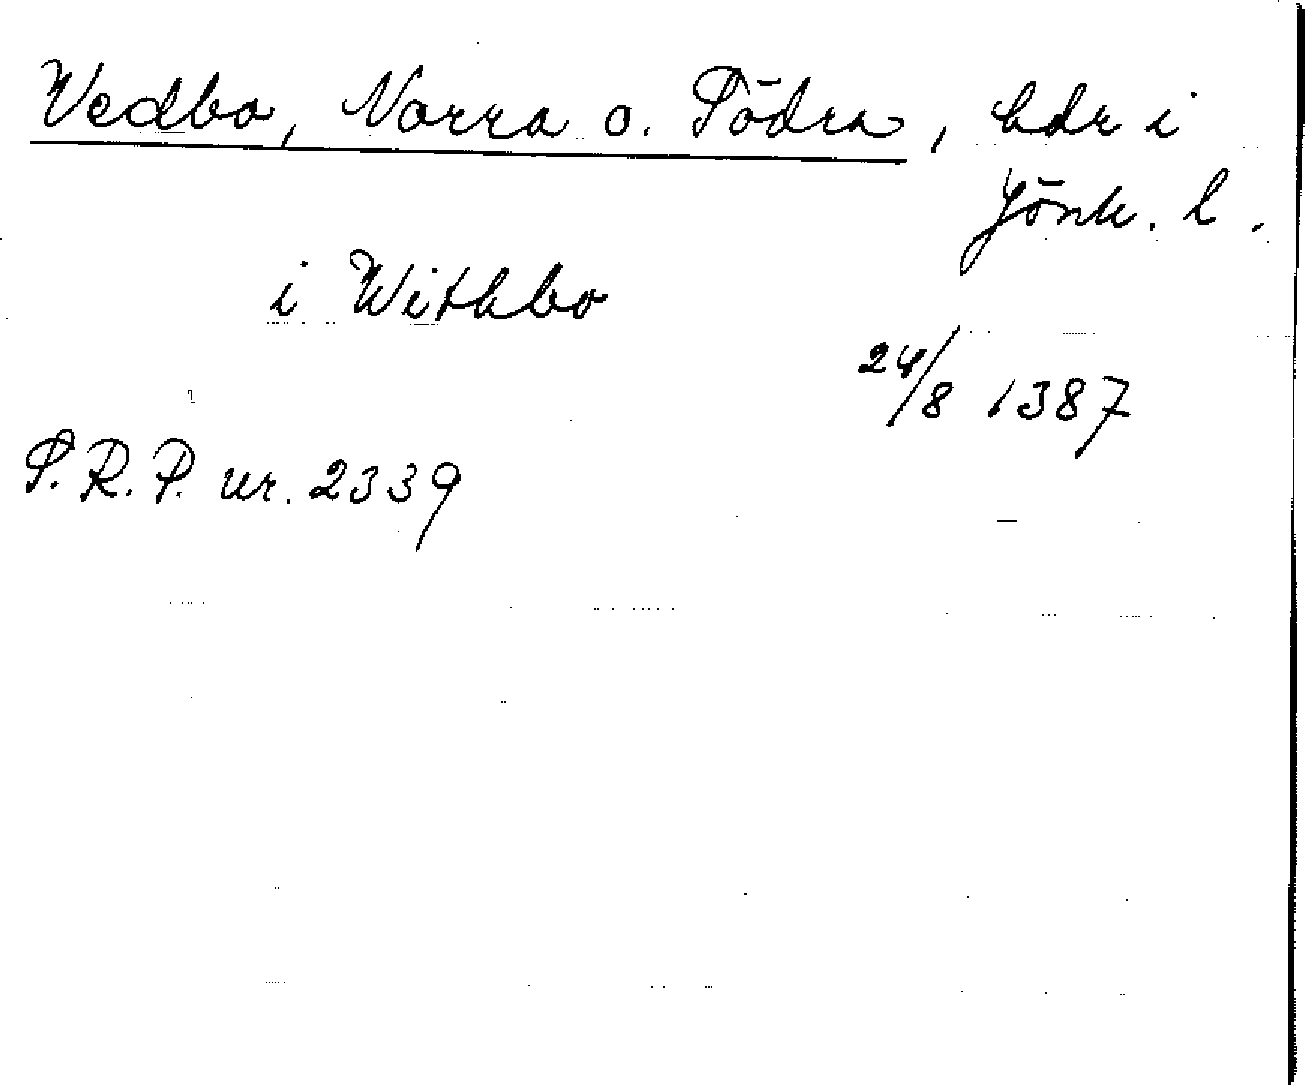 Vedbo, Norra o. Södra, hdr i
Jönk. l.
i Withbo
24/8 1387
S.R.P. nr. 2339